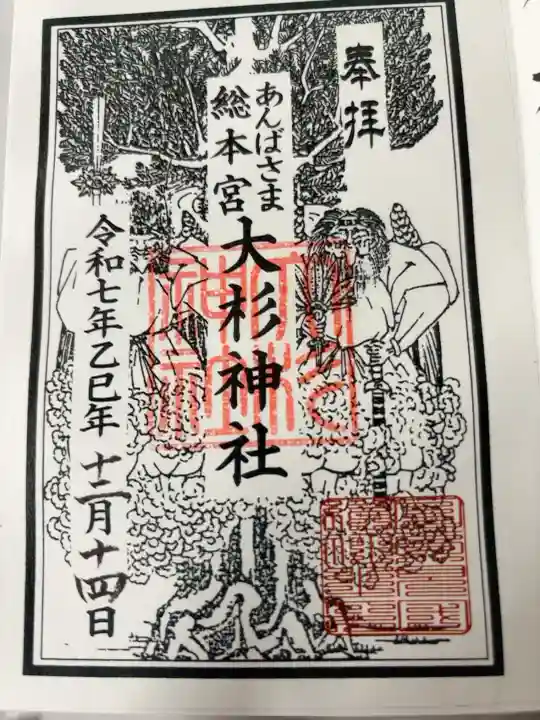 奉拝
あんばさま
総本宮
大杉神社
令和七年乙巳年
十二月十四日